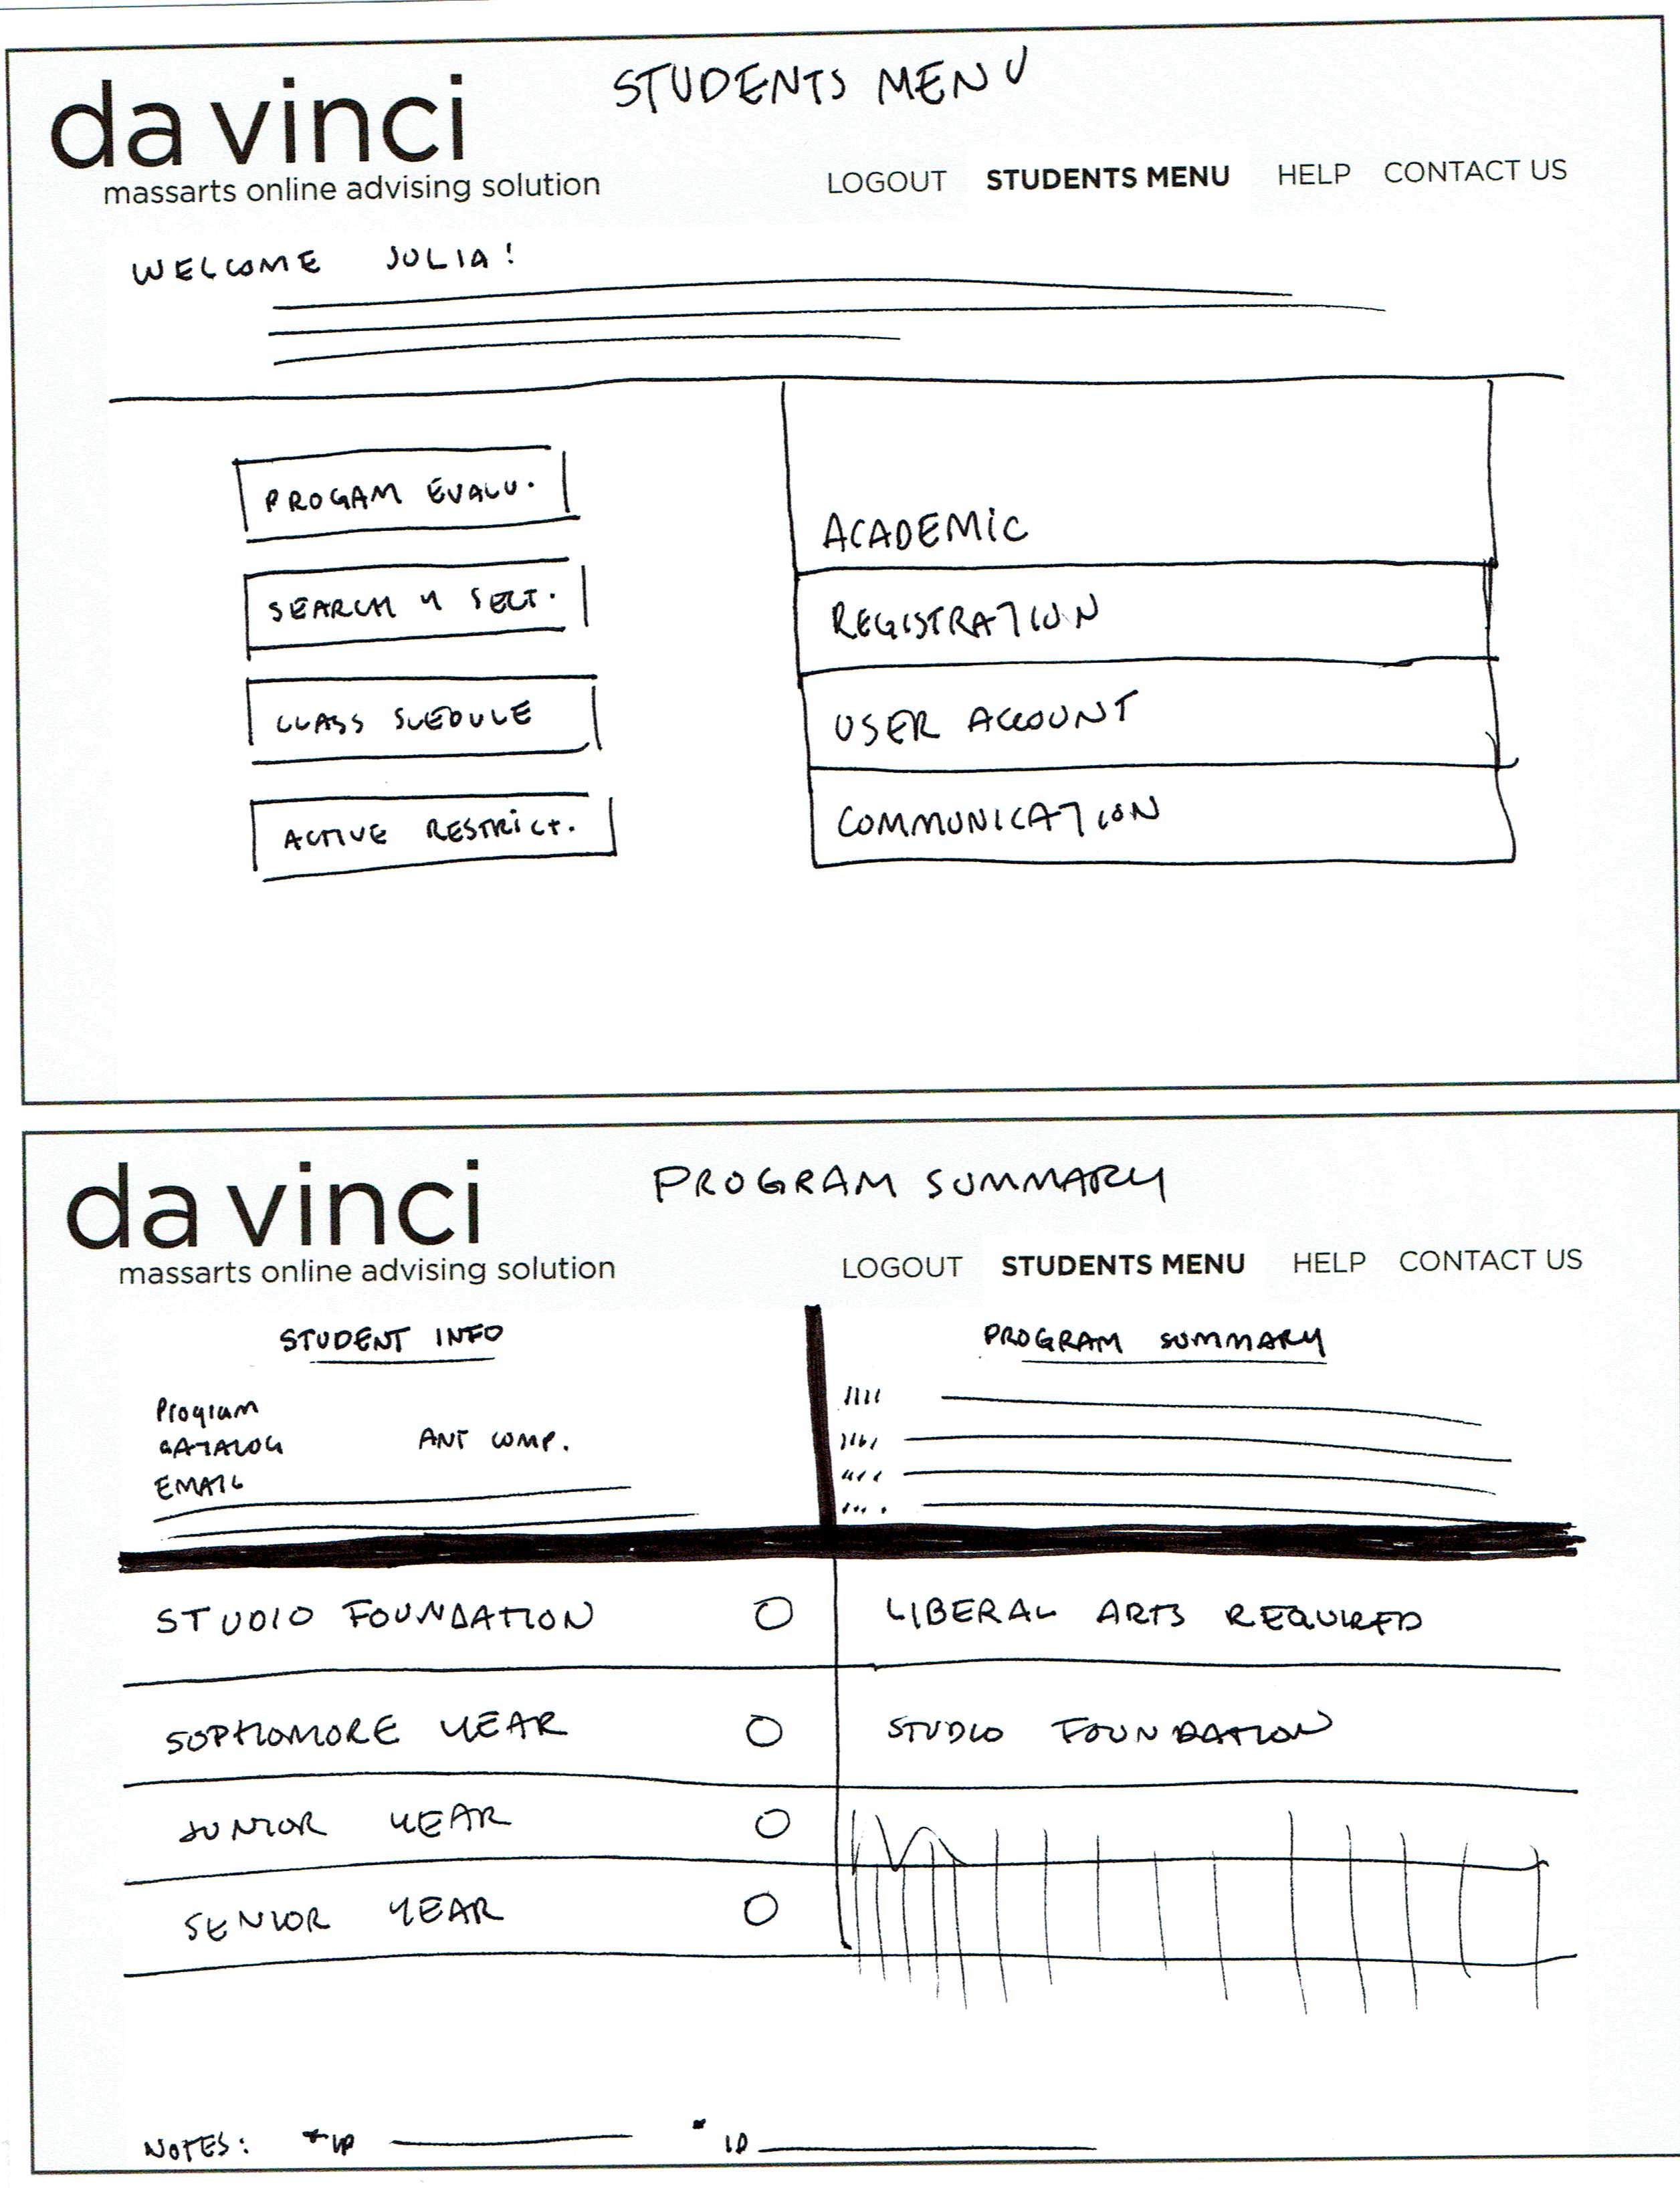 da vinci
STUDENTS MENU
massarts online advising solution
LOGOUT STUDENTS MENU HELP CONTACT US
WELCOME JULIA!
PROGAM EVALU.
SEARCH
CLASS SCEDULE
ACTIVE RESTRICT.
ACADEMIC
REGISTRATION
USER ACCOUNT
COMMUNICATION
da vinci
PROGRAM SUMMARY
massarts online advising solution
LOGOUT STUDENTS MENU HELP CONTACT US
STUDENT INFO
Program
CATALOG ANT COMP.
EMAIL
PROGRAM SUMMARY
STUDIO FOUNDATION
SOPHOMORE YEAR
JUNIOR YEAR
SENIOR YEAR
LIBERAL ARTS REQUIRED
STUDIO FOUNDATION
NOTES: